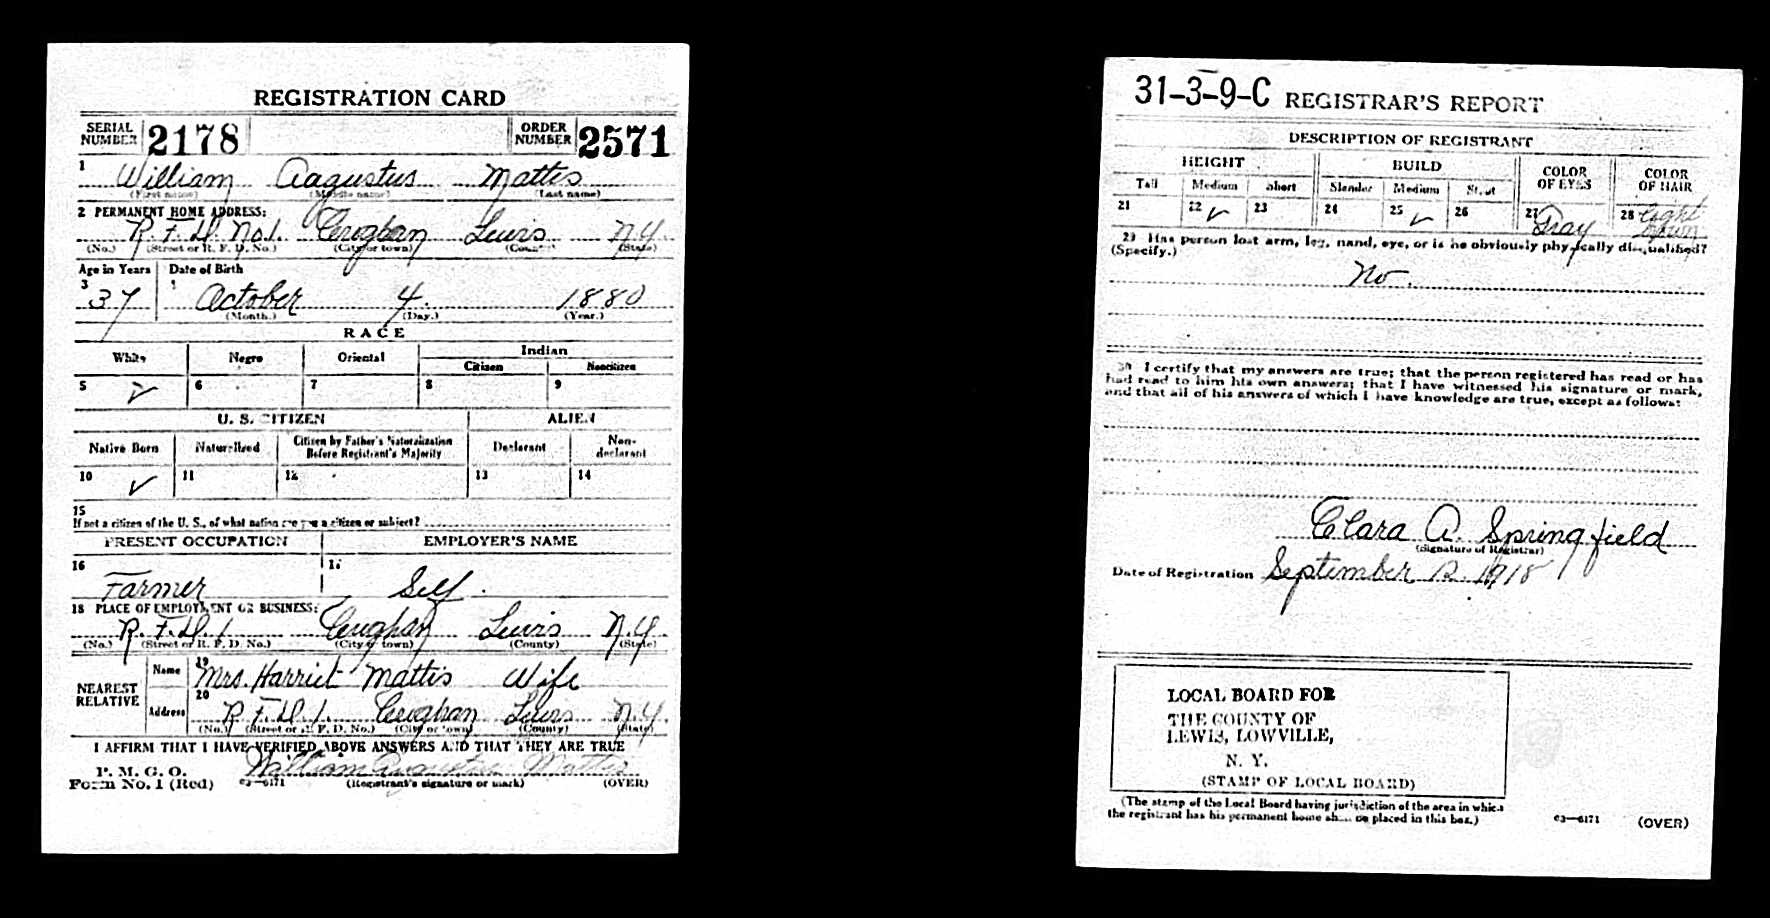 REGISTRATION CARD
SERIAL NUMBER 2178 ORDER NUMBER 2571
1 William Augustus Mattis
(First name) (Middle name) (Last name)
2 PERMANENT HOME ADDRESS:
R.F.D. No.1. Croghan Lewis N.Y.
(No.) (Street or R. F. D. No.) (City or town) (County) (State)
Age in Years Date of Birth
3 37 4 October 4. 1880
(Month.) (Day.) (Year.)
RACE
White Negro Oriental Indian
Citizen Noncitizen
5 ✓ 6 7 8 9
U. S. CITIZEN ALIEN
Native Born Naturalized Citizen by Father's Naturalization Before Registrant's Majority Declarant Non-declarant
10 ✓ 11 12 13 14
15
If not a citizen of the U. S., of what nation are you a citizen or subject?
PRESENT OCCUPATION EMPLOYER'S NAME
16 Farmer 17 Self.
18 PLACE OF EMPLOYMENT OR BUSINESS:
R.F.D.1 Croghan Lewis N.Y.
(No.) (Street or R. F. D. No.) (City or town) (County) (State)
NEAREST RELATIVE
Name 19 Mrs. Harriet Mattis Wife
Address 20 R.F.D.1. Croghan Lewis N.Y.
(No.) (Street or R. F. D. No.) (City or town) (County) (State)
I AFFIRM THAT I HAVE VERIFIED ABOVE ANSWERS AND THAT THEY ARE TRUE
P. M. G. O.
Form No. 1 (Red) c3—6171 William Augustus Mattis
(Registrant's signature or mark) (OVER)
31-3-9-C REGISTRAR'S REPORT
DESCRIPTION OF REGISTRANT
HEIGHT BUILD COLOR OF EYES COLOR OF HAIR
Tall Medium Short Slender Medium Stout
21 22 ✓ 23 24 25 ✓ 26 27 Gray 28 Light Brown
29 Has person lost arm, leg, hand, eye, or is he obviously physically disqualified?
(Specify.)
No.
30 I certify that my answers are true; that the person registered has read or has
had read to him his own answers; that I have witnessed his signature or mark,
and that all of his answers of which I have knowledge are true, except as follows:
Clara A. Springfield
(Signature of Registrar)
Date of Registration September 12. 1918
LOCAL BOARD FOR
THE COUNTY OF
LEWIS, LOWVILLE,
N. Y.
(STAMP OF LOCAL BOARD)
(The stamp of the Local Board having jurisdiction of the area in which
the registrant has his permanent home shall be placed in this box.)
c3—6171 (OVER)